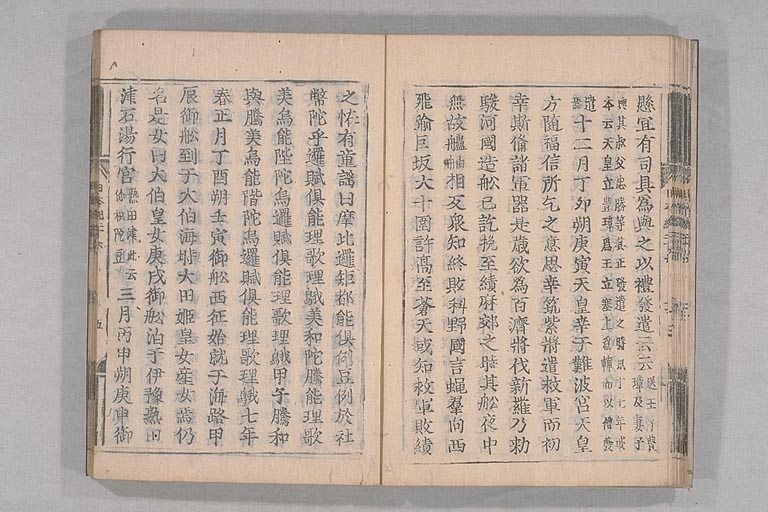 懸宜有司具爲與之以禮發遣云云送王子豐璋及妻子
與其叔父忠勝等其正發遣之時見于七年或
本云天皇立豐璋爲王立塞上爲輔而以禮發
遣十二月丁卯朔庚寅天皇幸于難波宮天皇
方隨福信所乞之意思幸筑紫將遣救軍而初
幸斯備諸軍器是歲欲爲百濟將伐新羅乃勅
駿河國造船已訖挽至績麻郊之時其船夜中
無故艫舳相反衆知終敗科野國言蝿羣向西
飛踰巨坂大十圍許高至蒼天或知救軍敗績
之恠有童謠曰摩比邏矩都能倶例豆例於社
幣陀乎邏賦倶能理歌理鵝美和陀騰能理歌
美烏能陛陀烏邏賦倶能理歌理鵝甲子騰和
與騰美烏能陛陀烏邏賦倶能理歌理鵝七年
春正月丁酉朔壬寅御船西征始就于海路甲
辰御船到于大伯海時大田姬皇女産女焉仍
名是女曰大伯皇女庚戌御船泊于伊豫熟田
津石湯行宮熟田津此云
儞枳陀豆三月丙申朔庚申御
五